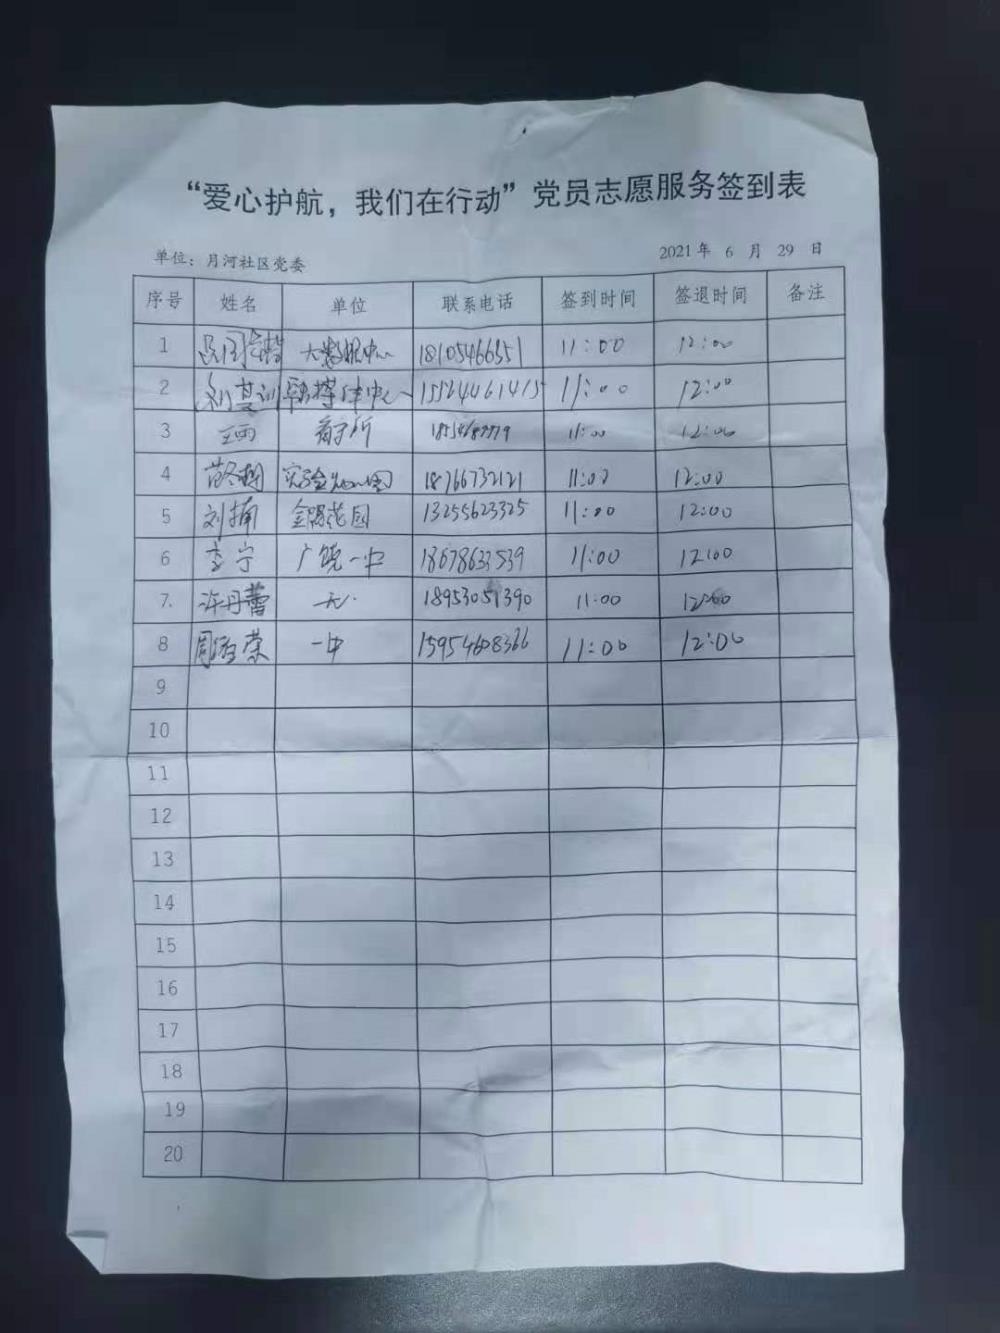 “爱心护航，我们在行动”党员志愿服务签到表
单位：月河社区党委 2021年 6 月 29 日
序号 姓名 单位 联系电话 签到时间 签退时间 备注
1 大数据中心 18105466351 11:00 12:00
2 刘其训 融媒体中心 15524461415 11:00 12:00
3 王雨 11:00 12:00
4 实验幼儿园 18766732121 11:00 12:00
5 刘楠 花园 13255623325 11:00 12:00
6 李宁 广饶一中 18678633539 11:00 12:00
7. 许丹蕾 无. 18953051390 11:00 12:00
8 周 荣 一中 15954608366 11:00 12:00
9
10
11
12
13
14
15
16
17
18
19
20